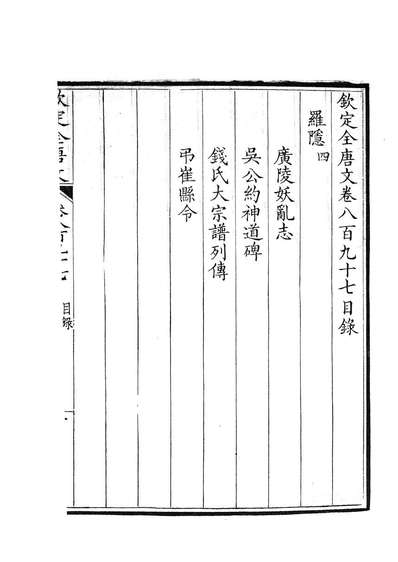 欽定全唐文卷八百九十七目錄
羅隱四
廣陵妖亂志
吳公約神道碑
錢氏大宗譜列傳
弔崔縣令
欽定全唐文
卷八百九十七
目錄
一